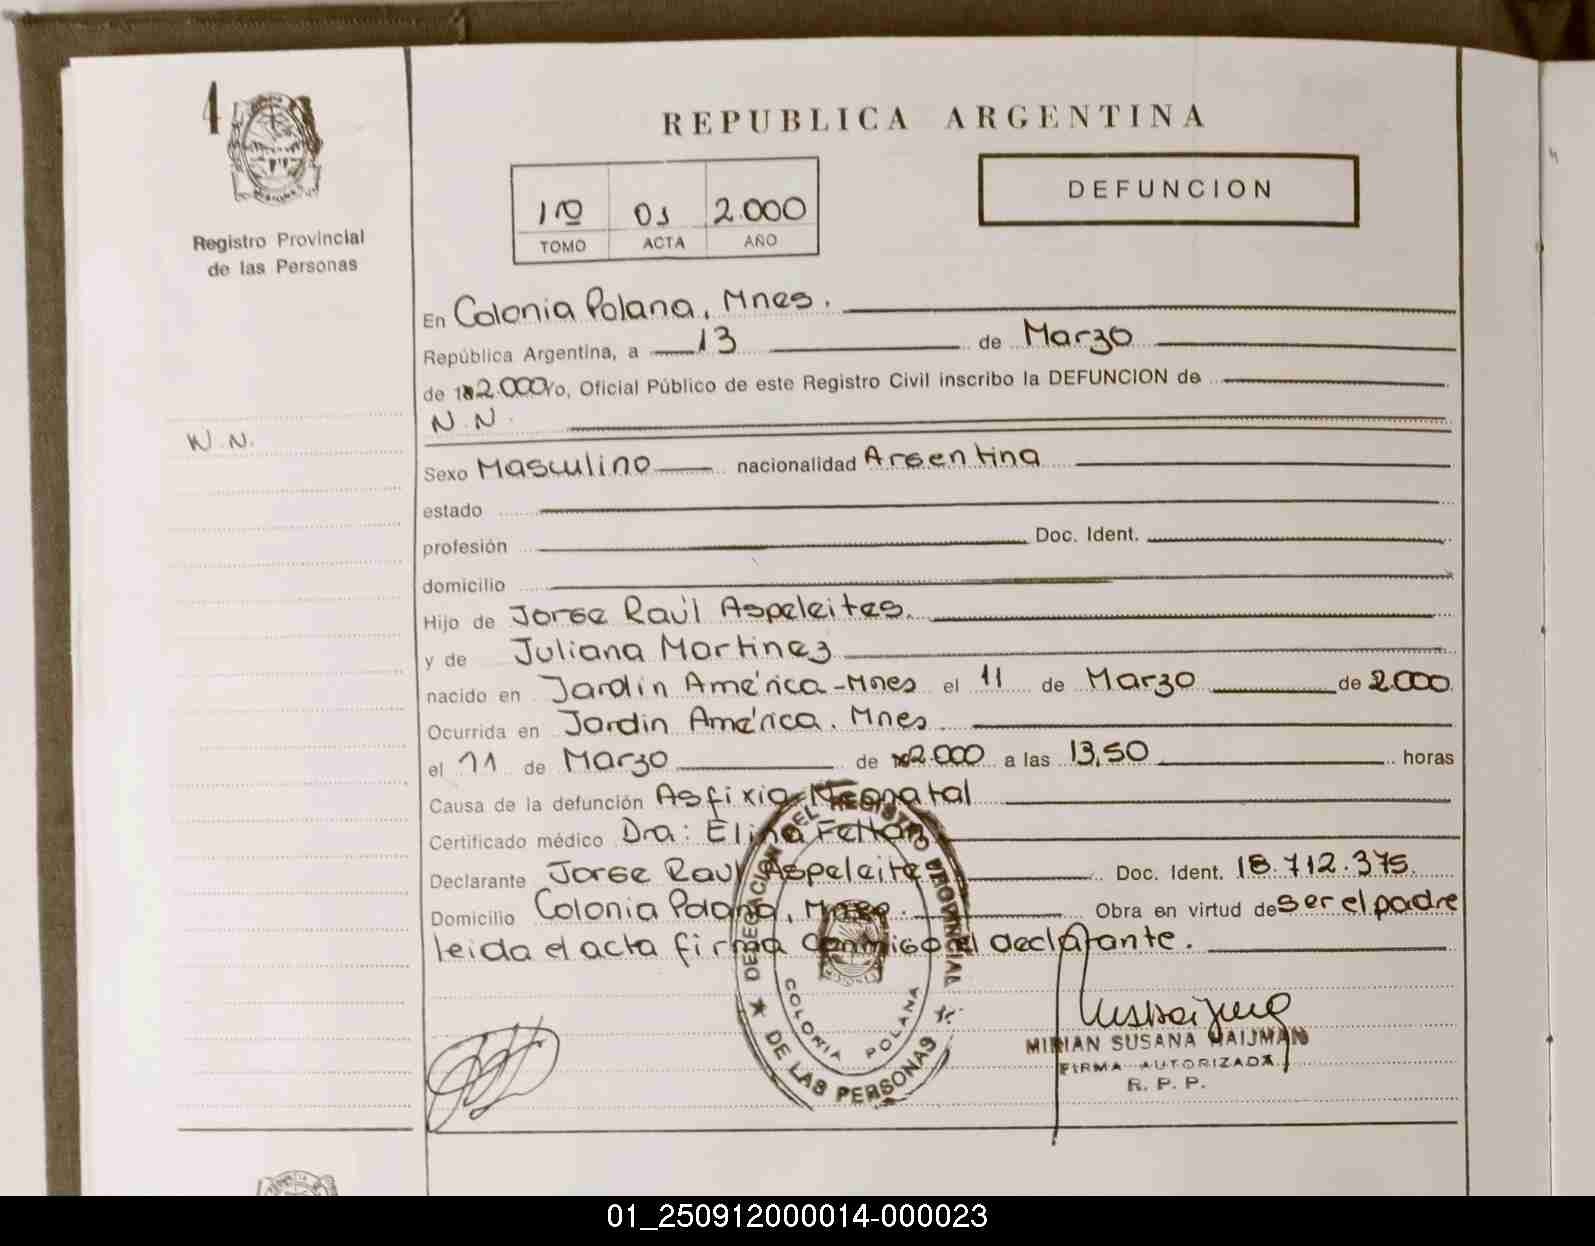 1
REPUBLICA ARGENTINA
DEFUNCION
1º 01 2.000
TOMO ACTA AÑO
Registro Provincial
de las Personas
En Colonia Polana, Mnes.
República Argentina, a 13 de Marzo
de 2.000 yo, Oficial Público de este Registro Civil inscribo la DEFUNCION de
N.N.
N.N.
Sexo Masculino nacionalidad Argentina
estado
profesión Doc. Ident.
domicilio
Hijo de Jorge Raúl Aspeleites.
y de Juliana Martinez
nacido en Jardin América - Mnes el 11 de Marzo de 2.000
Ocurrida en Jardin América. Mnes
el 11 de Marzo de 2.000 a las 13,50 horas
Causa de la defunción Asfixia Neonatal
Certificado médico Dra: Elina
Declarante Jorge Raul Aspeleite Doc. Ident. 18.712.375.
Domicilio Colonia Polana, Mnes. Obra en virtud de ser el padre
leida el acta firma conmigo el declarante.
DELEGACION DEL REGISTRO PROVINCIAL
DE LAS PERSONAS
COLONIA POLANA
MIRIAN SUSANA HAIJMAN
FIRMA AUTORIZADA
R. P. P.
01_250912000014-000023